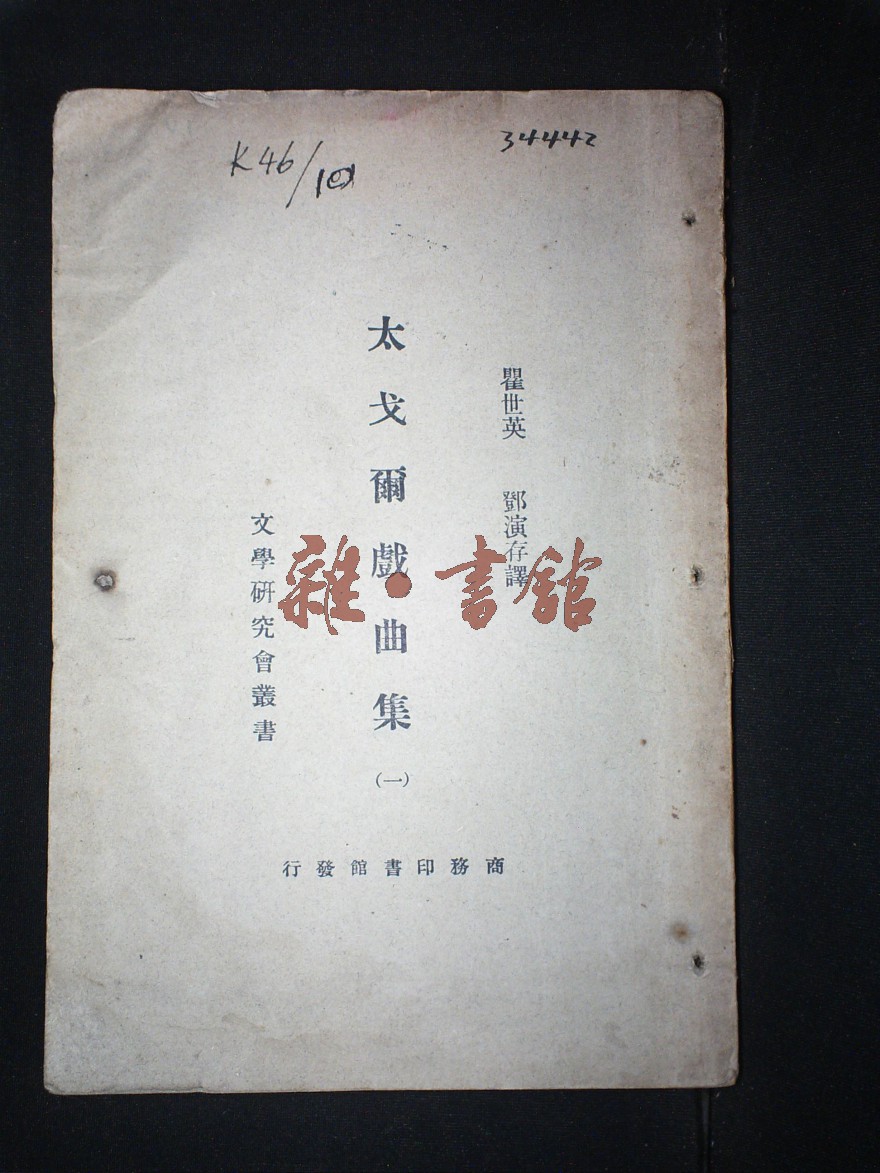 K46/10
34442
瞿世英 鄧演存譯
太戈爾戲曲集
(一)
文學研究會叢書
商務印書館發行
雜·書館